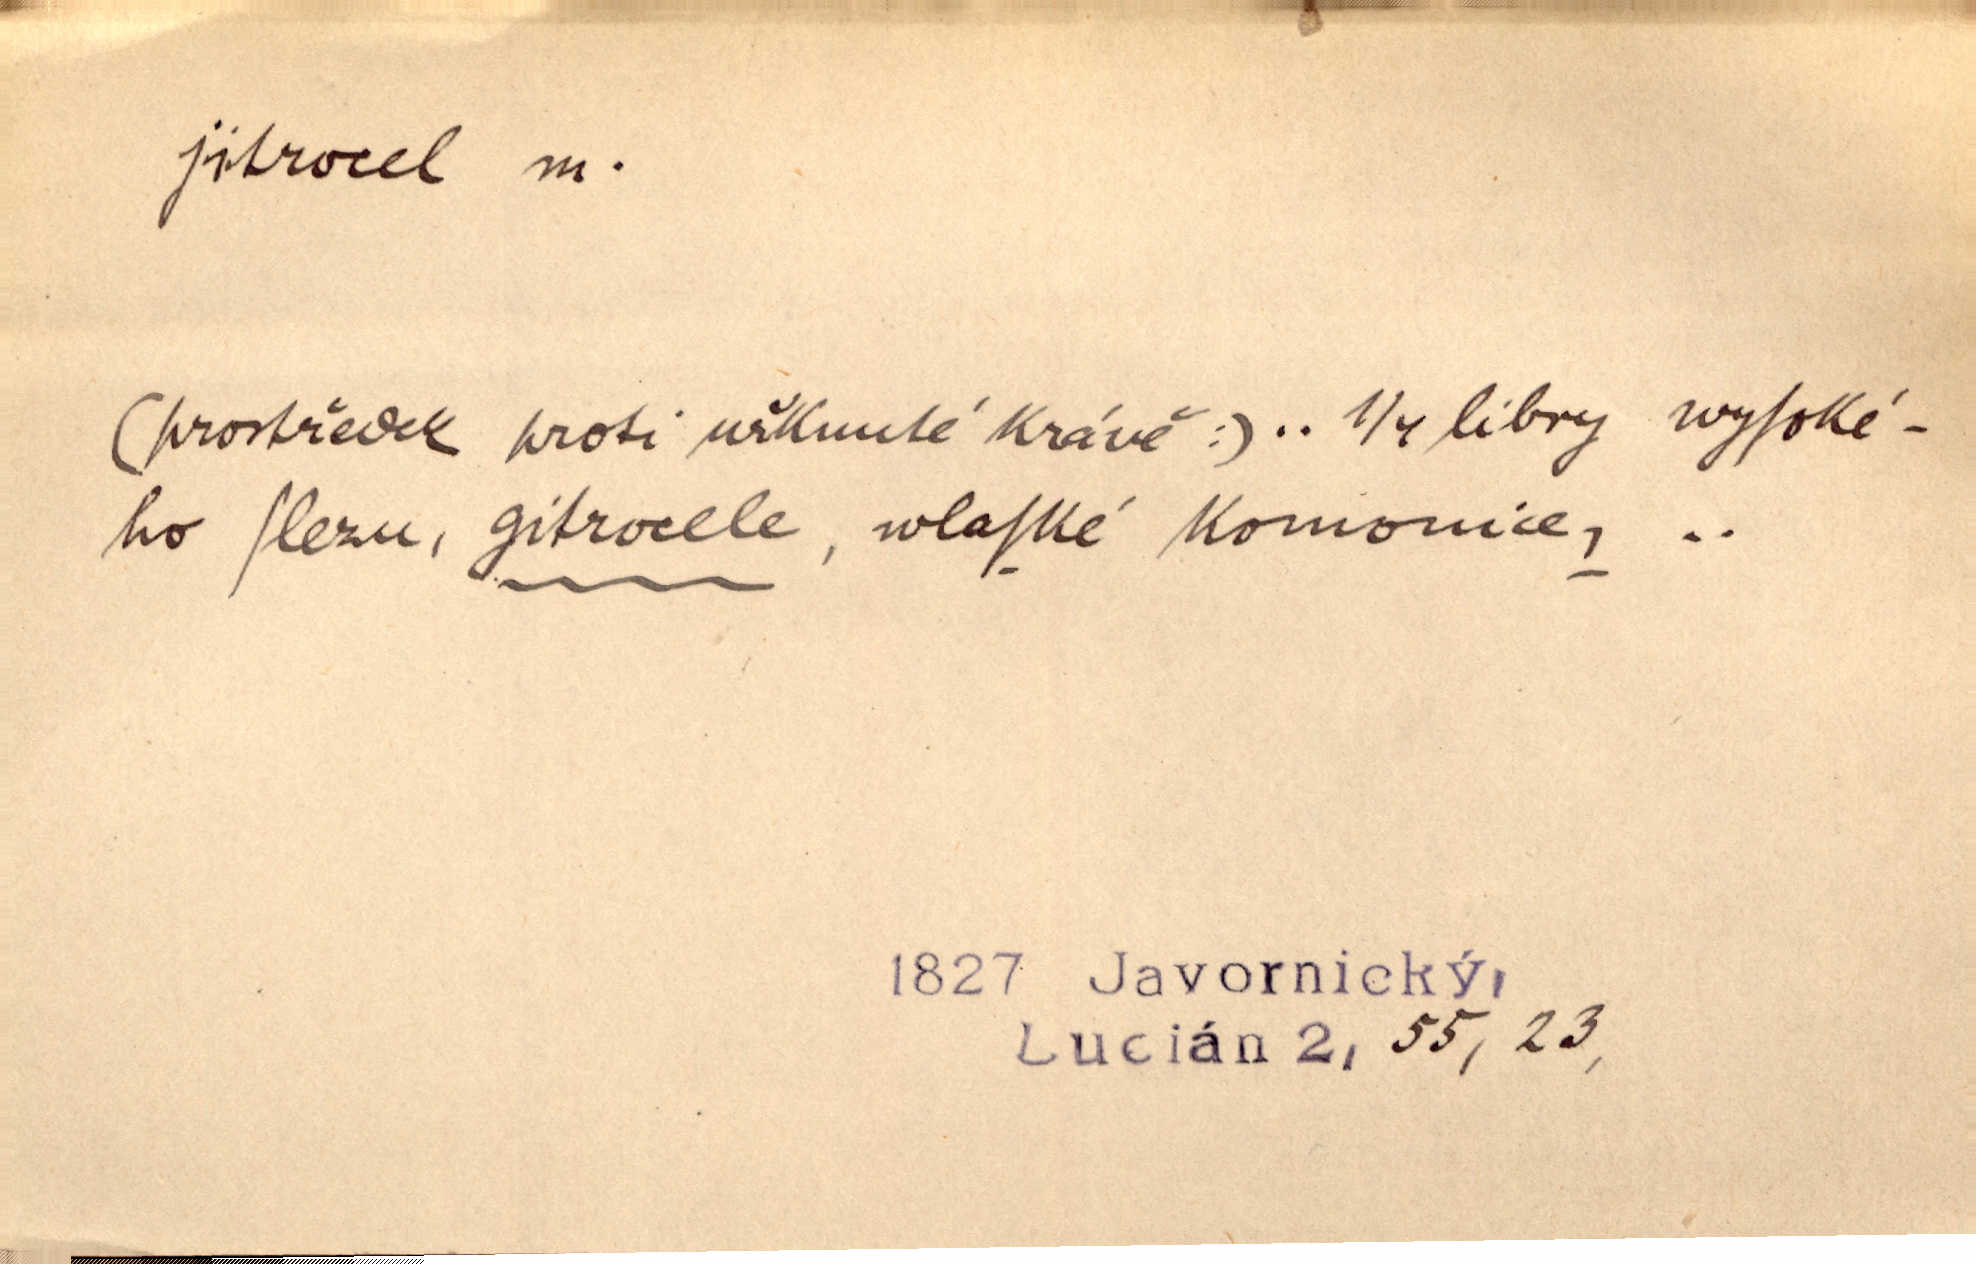 jitrocel m.
(prostředek proti uřknuté krávě:) .. 1/4 libry wyſoké-
ho ſlezu, gitrocele, wlaſké komonice, ..
1827 Javornický,
Lucián 2, 55, 23,